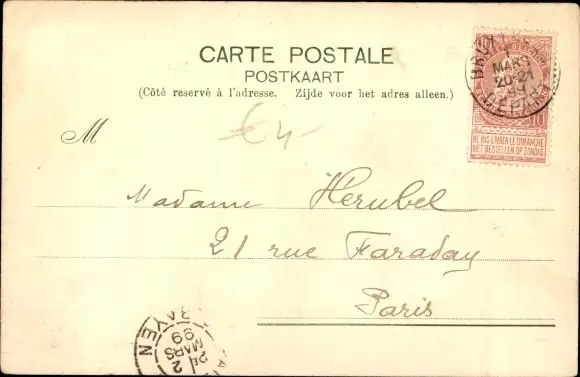 CARTE POSTALE
POSTKAART
(Côté reservé à l'adresse. Zijde voor het adres alleen.)
M
€4
1
MARS
20-21
99
DEPART
10
NE PAS LIVRER LE DIMANCHE
NIET BESTELLEN OP ZONDAG
Madame Herubel
21 rue Faraday
Paris
2E
2
MARS
99